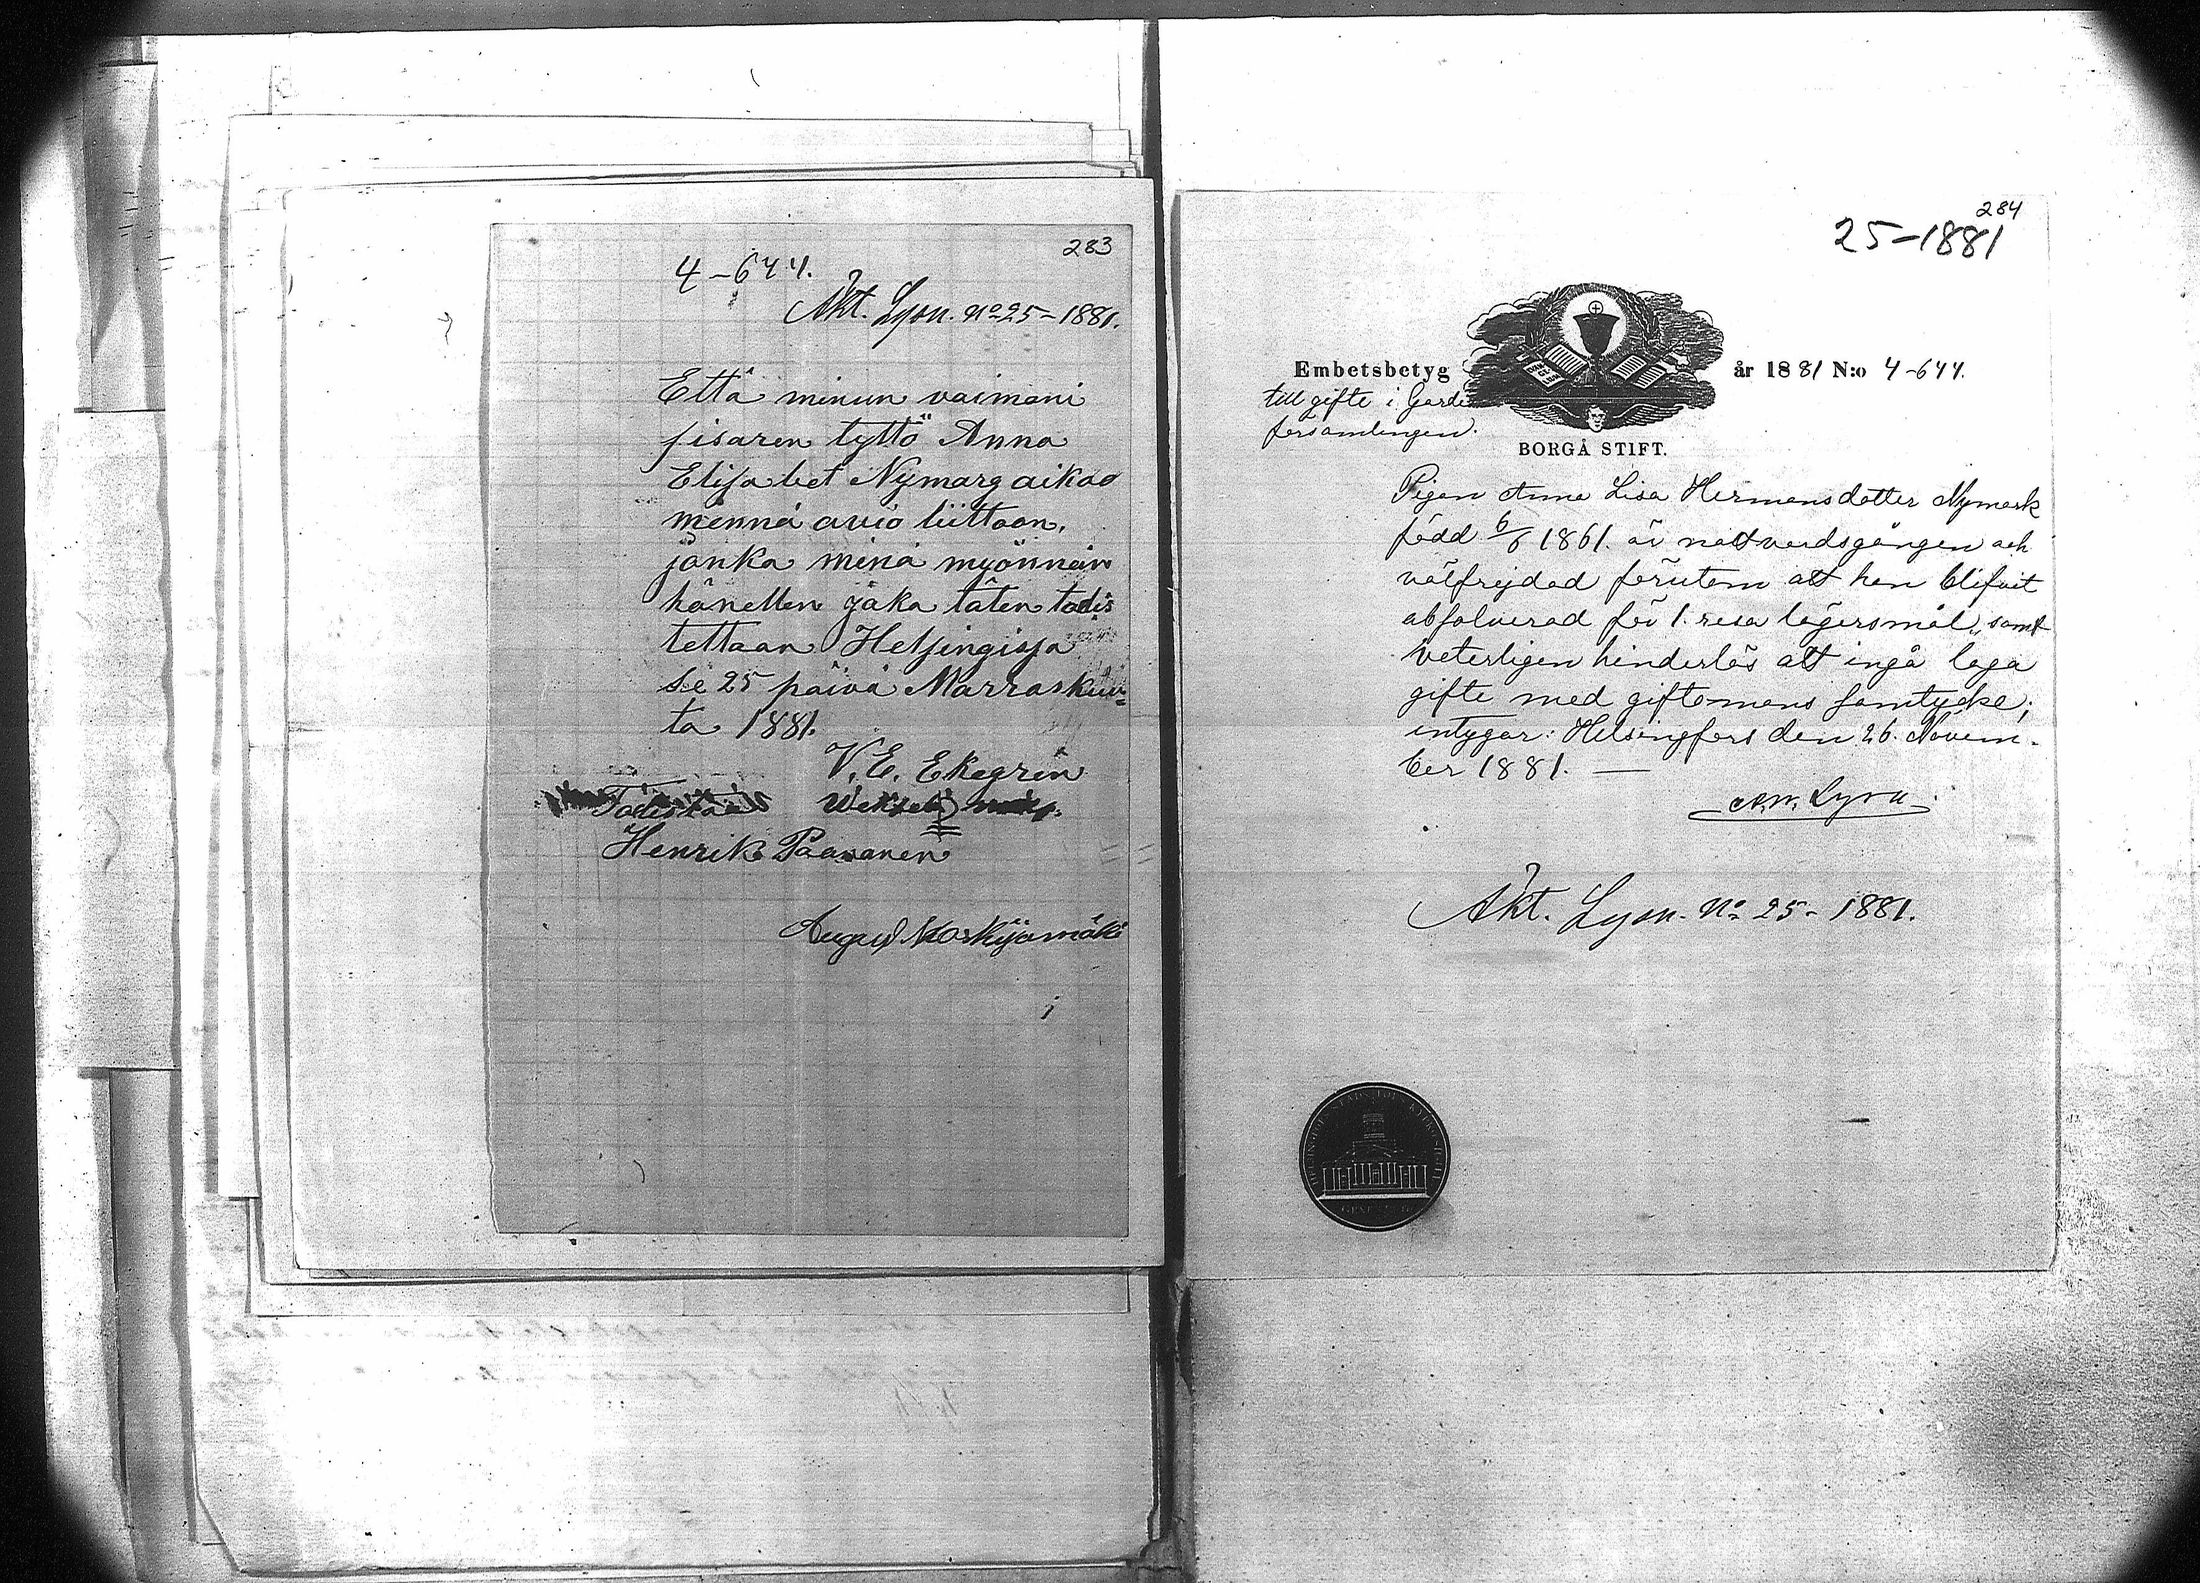 283
4-644.
Äkt. Lysn. No 25-1881.
Että minun vaimoni
sisaren tyttö Anna
Elisabet Nymarg aikoo
mennä avio liittoon,
jonka minä myönnän
hänellen joka täten todis
tettaan Helsingissä
se 25 päivä Marraskuu-
ta 1881.
V. E. Ekegrén
Todistaa
Henrik Paananen
August Koskijomäki
284
25-1881
Embetsbetyg år 1881 N:o 4-644.
till gifte i Gardes
församlingen.
BORGÅ STIFT.
Pigan Anna Lisa Hermansdotter Nymark
född 6/6 1861. är nattvardsgången och
välfrejdad förutom att hon blifvit
absolverad för 1. resa lägersmål, samt
veterligen hinderlös att ingå laga
gifte med giftomans samtycke;
intygar: Helsingfors den 26. Novem-
ber 1881. —
Lyra
Äkt. Lysn. No 25-1881.